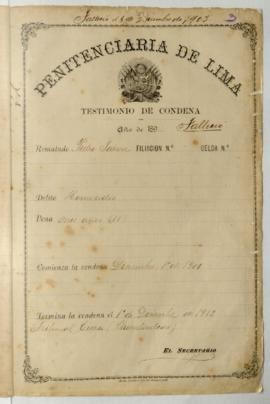 Falleció el de 1903
PENITENCIARIA DE LIMA
TESTIMONIO DE CONDENA
Año de 189
Falleció
Rematado Pedro FILIACION N.º CELDA N.º
Delito Homicidio
Pena once años
Comienza la condena Diciembre 1º de 1901
Termina la condena el 1º de Diciembre de 1912
EL SECRETARIO